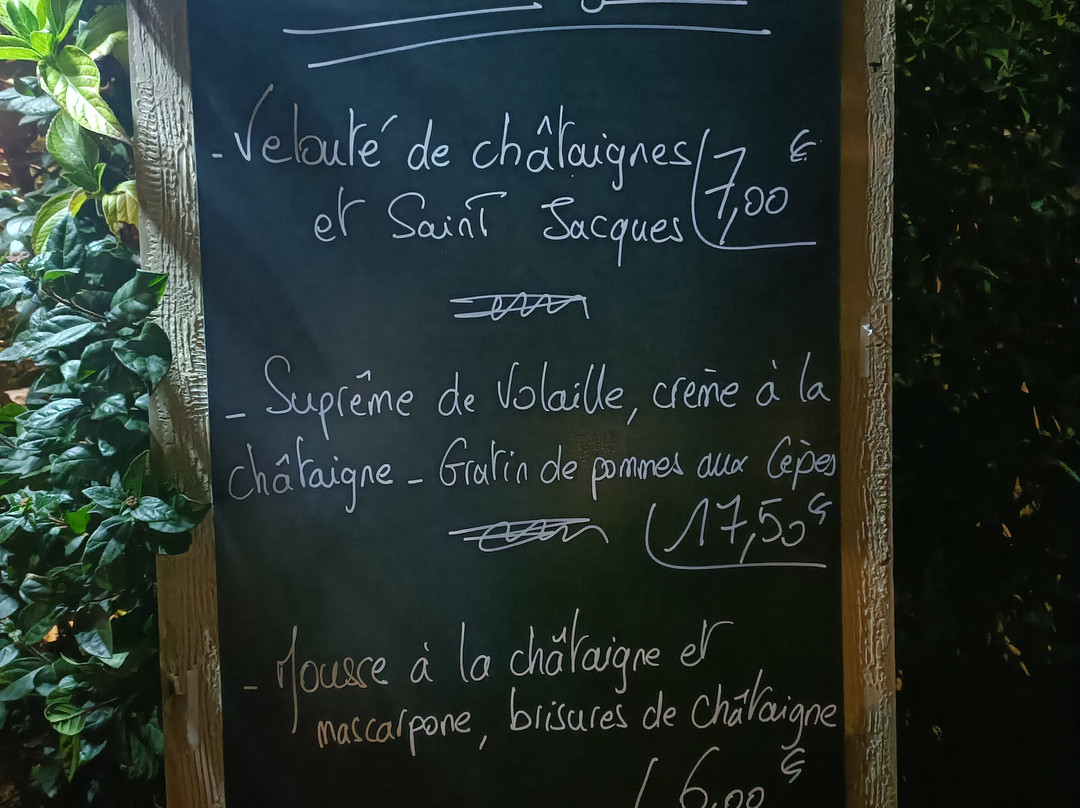 - Velouté de châtaignes 7,00€
et Saint Jacques
- Suprême de Volaille, crème à la
châtaigne - Gratin de pommes aux Cèpes
17,50€
- Mousse à la châtaigne et
mascarpone, brisures de châtaigne
6,00€